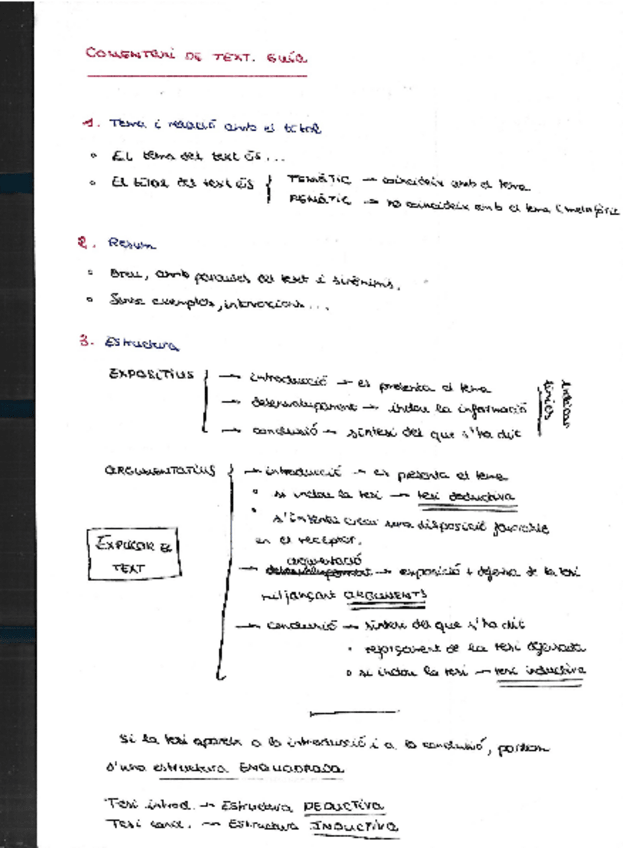 COMENTARI DE TEXT. GUIA
1. Tema i relació amb el títol
El tema del text és...
El títol del text és { TEMÀTIC → coincideix amb el tema
REMÀTIC → no coincideix amb el tema (metafòric
2. Resum
Breu, amb paraules del text i sinònims.
Sense exemples, interaccions...
3. Estructura
EXPOSITIUS
→ introducció → es presenta el tema
→ desenvolupament → inclou la informació
→ conclusió → síntesi del que s'ha dit
Indicar
línies
ARGUMENTATIUS
→ introducció → es presenta el tema
si inclou la tesi → tesi deductiva
s'intenta crear una disposició favorable
en el receptor.
EXPLICAR EL
TEXT
argumentació
→ desenvolupament → exposició + defensa de la tesi
mitjançant ARGUMENTS
→ conclusió → síntesi del que s'ha dit
reforçament de la tesi defensada
si inclou la tesi → tesi inductiva
Si la tesi apareix a la introducció i a la conclusió, parlem
d'una estructura ENQUADRADA
Tesi introd. → Estructura DEDUCTIVA
Tesi concl. → Estructura INDUCTIVA